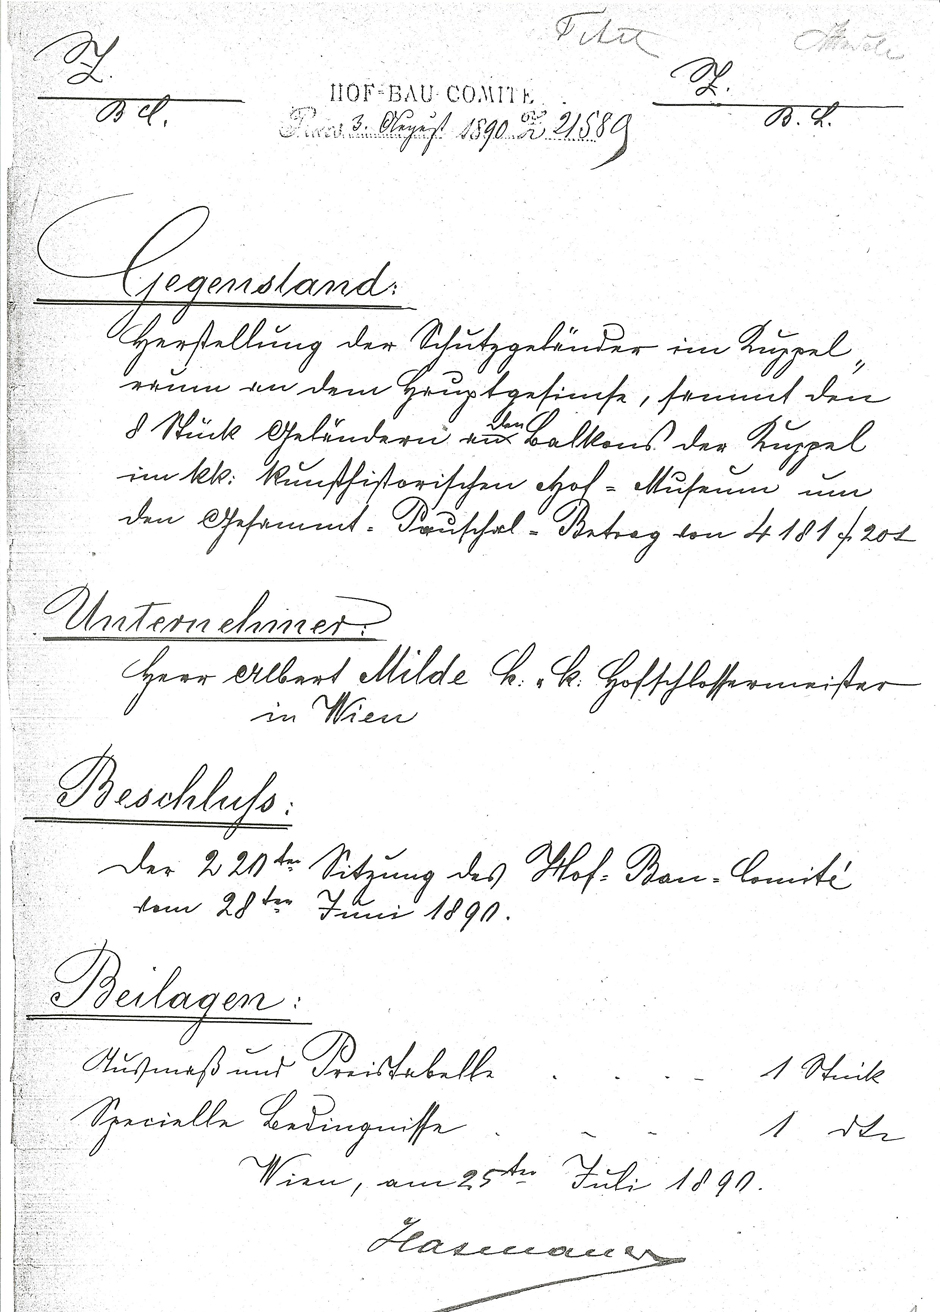 Z.
B C.
Z.
B. C.
HOF-BAU-COMITÉ
Praes. 3. August 1890 Z 21589
Gegenstand:
Herstellung der Schutzgeländer im Kuppel„
raum an dem Hauptgesimse, sammt den
8 Stück Geländern an den Balkons der Kuppel
im kk: kunsthistorischen Hof-Museum um
den Gesammt-Pauschal-Betrag von 4181 f 20 x
Unternehmer:
Herr Albert Milde k. k. Hofschlossermeister
in Wien
Beschluss:
der 220ten Sitzung des Hof-Bau-Comité
vom 28ten Juni 1890.
Beilagen:
Ausmaß und Preistabelle . . . - 1 Stück
Specielle Bedingnisse . - - 1 dto
Wien, am 25ten Juli 1890.
Hasenauer